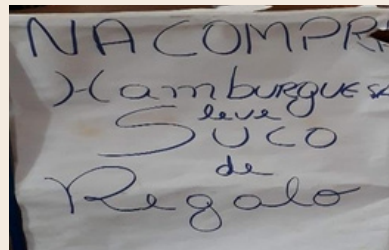 NA COMPRA
Hamburguesa
leve
SUCO
de
Regalo